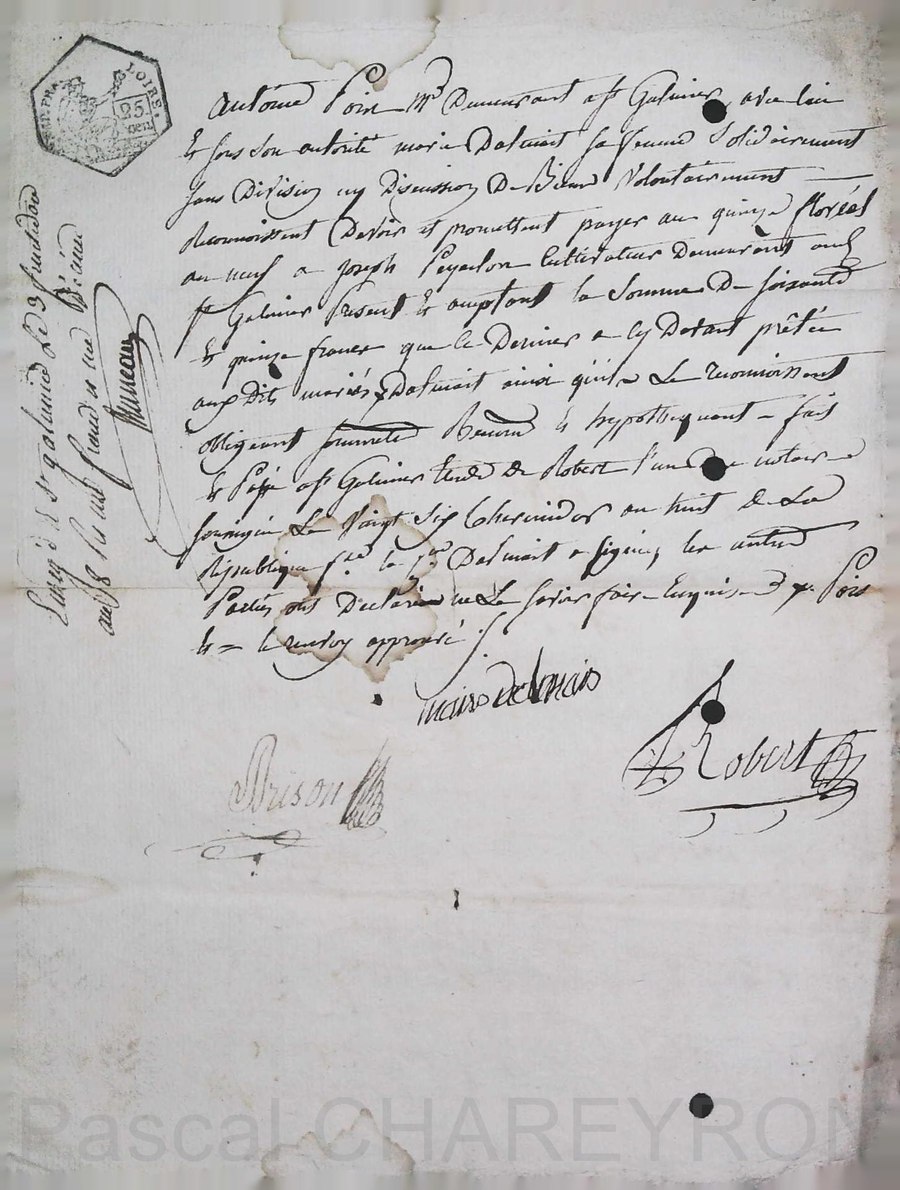 LOIRE.
25.
CEN.
antoine Poix md Demeurant a st Galmier, avec lui
& sous son autorité marie Dalmais sa femme Solidairement
sans Division ny Discussion De Biens Volontairement
Reconnoissent Devoir et promettent payer au quinze floréal
an neuf a joseph Peyachon Cultivateur Demeurant aud
st Galmier présent & acceptant la Somme De soixante
& quinze francs que le Dernier a cy Devant prêtée
aux Dits mariés Dalmais ainsi qu'ils Le reconnoissent
obligeant & hypothequant - fait
& Passé a st Galmier Etude de Robert l'un des notaires
soussignés Le Vingt Six thermidor an huit de La
République fse la de Dalmais a signé, les autres
Parties ont Déclaré ne Le Savoir faire Enquis & Poix
& = le renvoy approuvé
marie dalmais
Robert
Brison
Enreg. à St galmier Le 3 fructidor
an 8
Pascal CHAREYRON